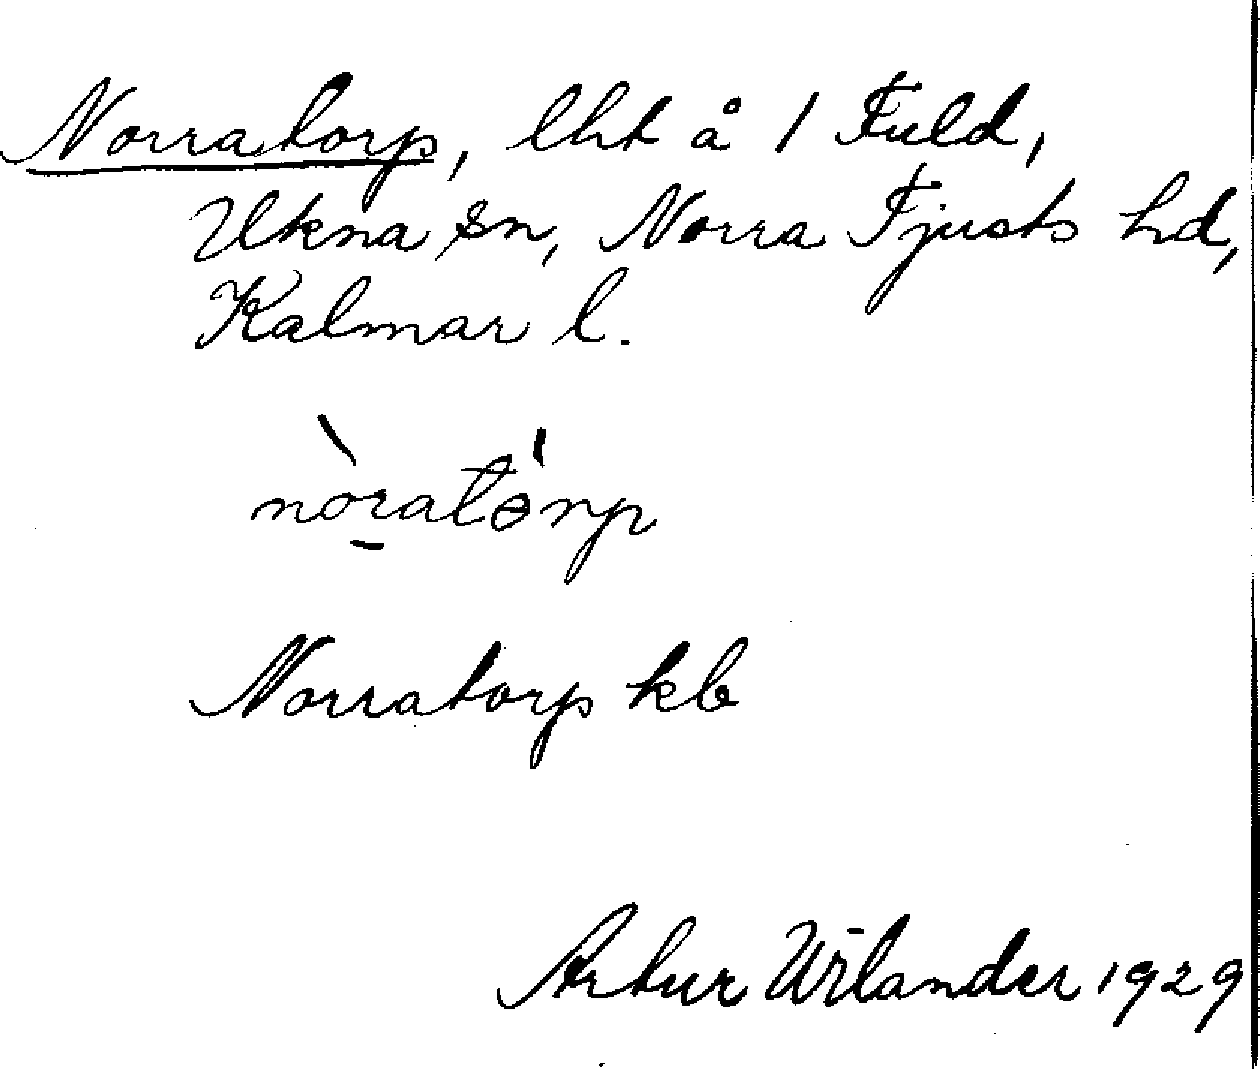 Norratorp, lht å 1 Fuld,
Ukna sn, Norra Tjusts hd,
Kalmar l.
nòratǿrp
Norratorp kb
Artur Wilander 1929